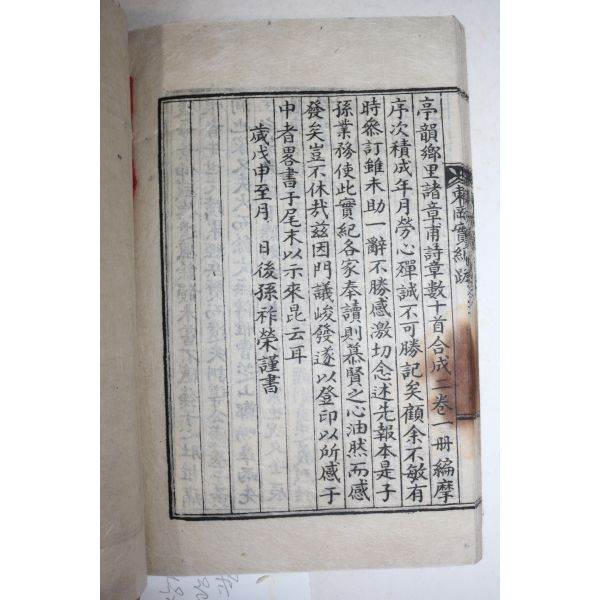 東岡實紀跋
亭韻鄉里諸章甫詩章數十首合成二卷一冊編摩
序次積成年月勞心殫誠不可勝記矣顧余不敏有
時參訂雖未助一辭不勝感激切念述先報本是子
孫業務使此實紀各家奉讀則慕賢之心油然而感
發矣豈不休哉茲因門議峻發遂以登印以所感于
中者畧書于尾末以示來昆云耳
歲戊申至月　日後孫祚榮謹書